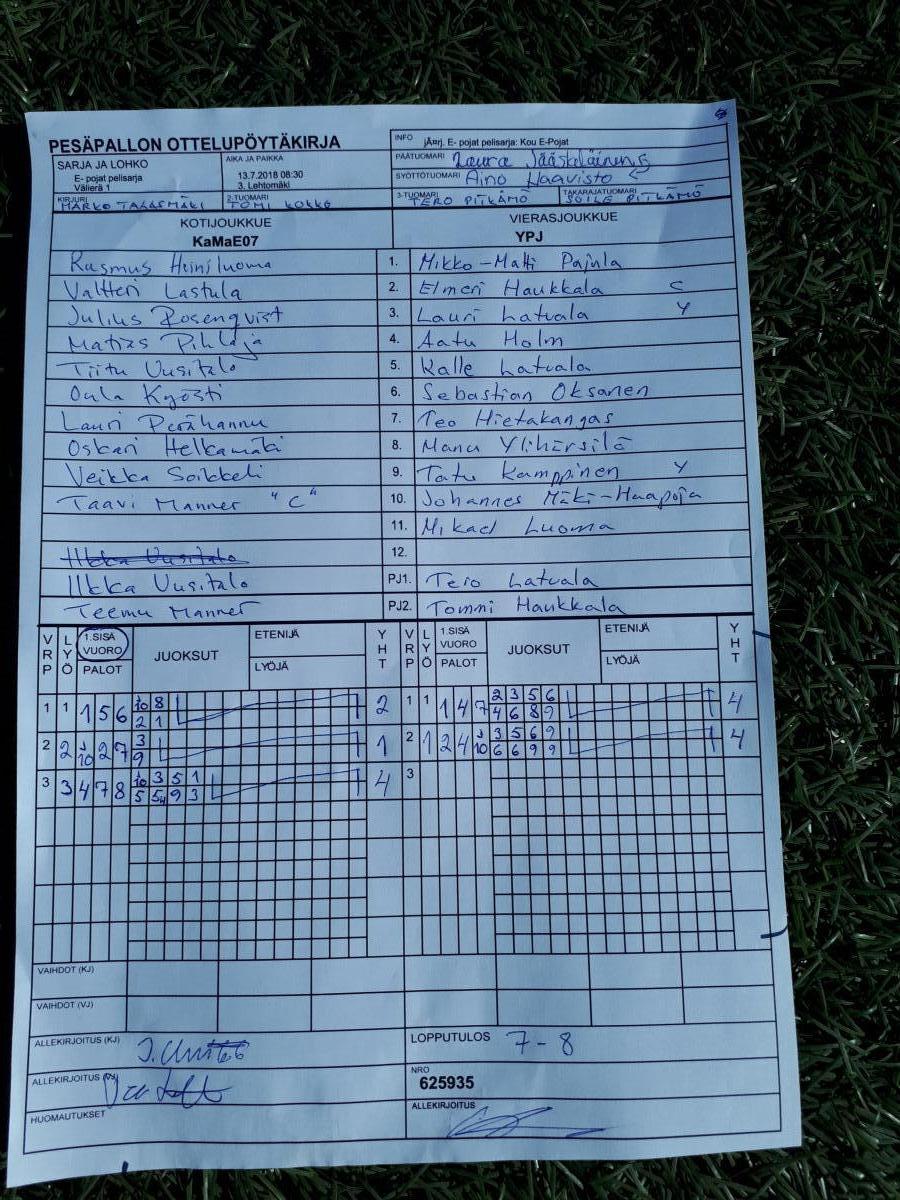 PESÄPALLON OTTELUPÖYTÄKIRJA
INFO jÄ¤rj. E- pojat pelisarja: Kou E-Pojat
SARJA JA LOHKO
E- pojat pelisarja
Välierä 1
AIKA JA PAIKKA
13.7.2018 08:30
3. Lehtomäki
PÄÄTUOMARI Laura Jääskeläinen
SYÖTTÖTUOMARI Aino Haavisto
KIRJURI MARKO TALASMÄKI
2-TUOMARI TOMI KOKKO
3-TUOMARI TERO PITKÄMÖ
TAKARAJATUOMARI SOILE PITKÄMÖ
KOTIJOUKKUE
KaMaE07
VIERASJOUKKUE
YPJ
Rasmus Heiniluoma 1. Mikko-Matti Pajula
Valtteri Lastula 2. Elmeri Haukkala C
Julius Rosenqvist 3. Lauri Latvala Y
Matias Pihlaja 4. Aatu Holm
Tiitu Uusitalo 5. Kalle Latvala
Oula Kyösti 6. Sebastian Oksanen
Lauri Perähannu 7. Teo Hietakangas
Oskari Helkamäki 8. Manu Ylihärsilä
Veikka Soikkeli 9. Tatu Kamppinen Y
Taavi Manner "C" 10. Johannes Mäki-Haapoja
11. Mikael Luoma
Ilkka Uusitalo 12.
Ilkka Uusitalo PJ1. Tero Latvala
Teemu Manner PJ2. Tommi Haukkala
VRP LYÖ 1.SISÄ VUORO PALOT JUOKSUT ETENIJÄ LYÖJÄ YHT VRP LYÖ 1.SISÄ VUORO PALOT JUOKSUT ETENIJÄ LYÖJÄ YHT
1 1 1 5 6 10 8 2 1 1 1 4 7 2 3 5 6 4
2 1 4 6 8 9
2 2 J10 2 7 3 1 2 1 2 4 J10 3 5 6 9 4
9 6 6 9 9
3 3 4 7 8 10 3 5 1 4 3
5 5 9 3
VAIHDOT (KJ)
VAIHDOT (VJ)
ALLEKIRJOITUS (KJ)
LOPPUTULOS 7-8
ALLEKIRJOITUS (VJ)
NRO
625935
HUOMAUTUKSET
ALLEKIRJOITUS